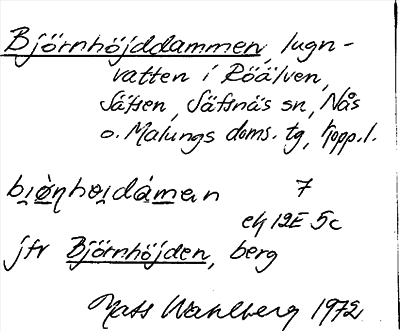 Björnhöjddammen, lugn-
vatten i Röälven,
Säfsen, Säfsnäs sn, Nås
o. Malungs doms. tg, Kopp. l.
bi̯ø̀ṇhøi̯dáman 7
ek 12E 5c
jfr Björnhöjden, berg
Mats Wahlberg 1972